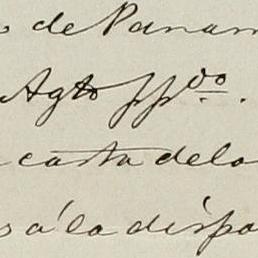 s de Panam
Agto ppdo.
carta dela
s á la dispo